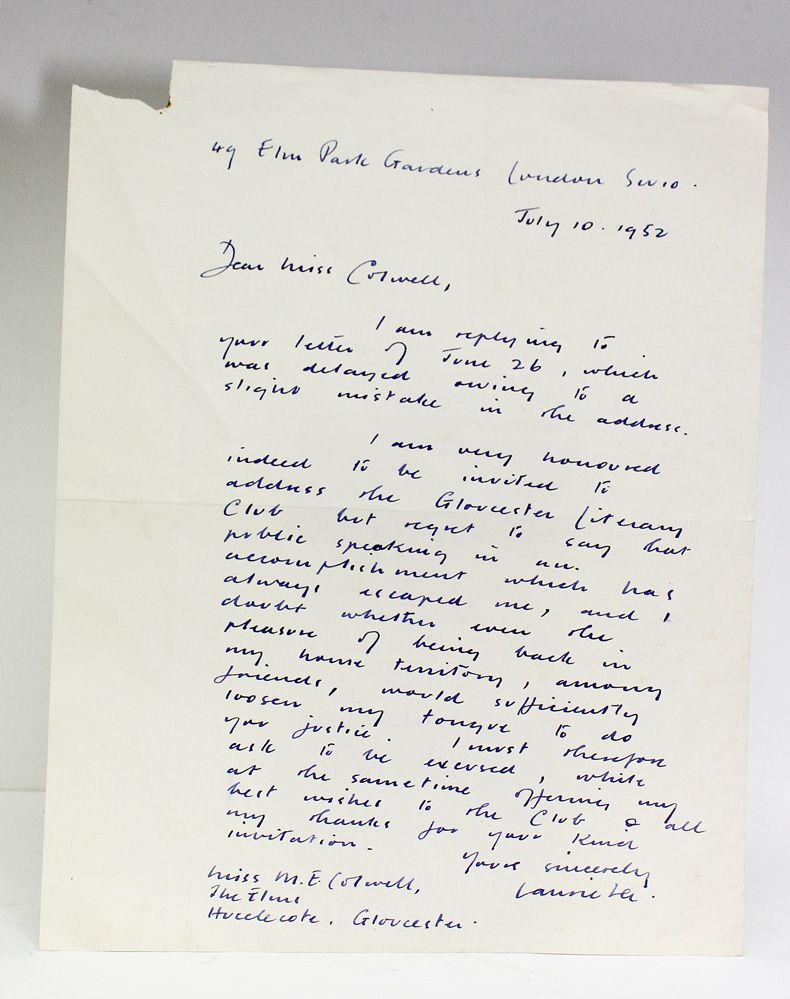 49 Elm Park Gardens London SW10.
July 10. 1952
Dear Miss Colwell,
I am replying to
your letter of June 26, which
was delayed owing to a
slight mistake in the address.
I am very honoured
indeed to be invited to
address the Gloucester Literary
Club but regret to say that
public speaking is an
accomplishment which has
always escaped me, and I
doubt whether even the
pleasure of being back in
my home territory, among
friends, would sufficiently
loosen my tongue to do
you justice. I must therefore
ask to be excused, while
at the sametime offering my
best wishes to the Club & all
my thanks for your kind
invitation.
Yours sincerely
Laurie Lee.
Miss M.E. Colwell,
The Elms
Hucclecote. Gloucester.